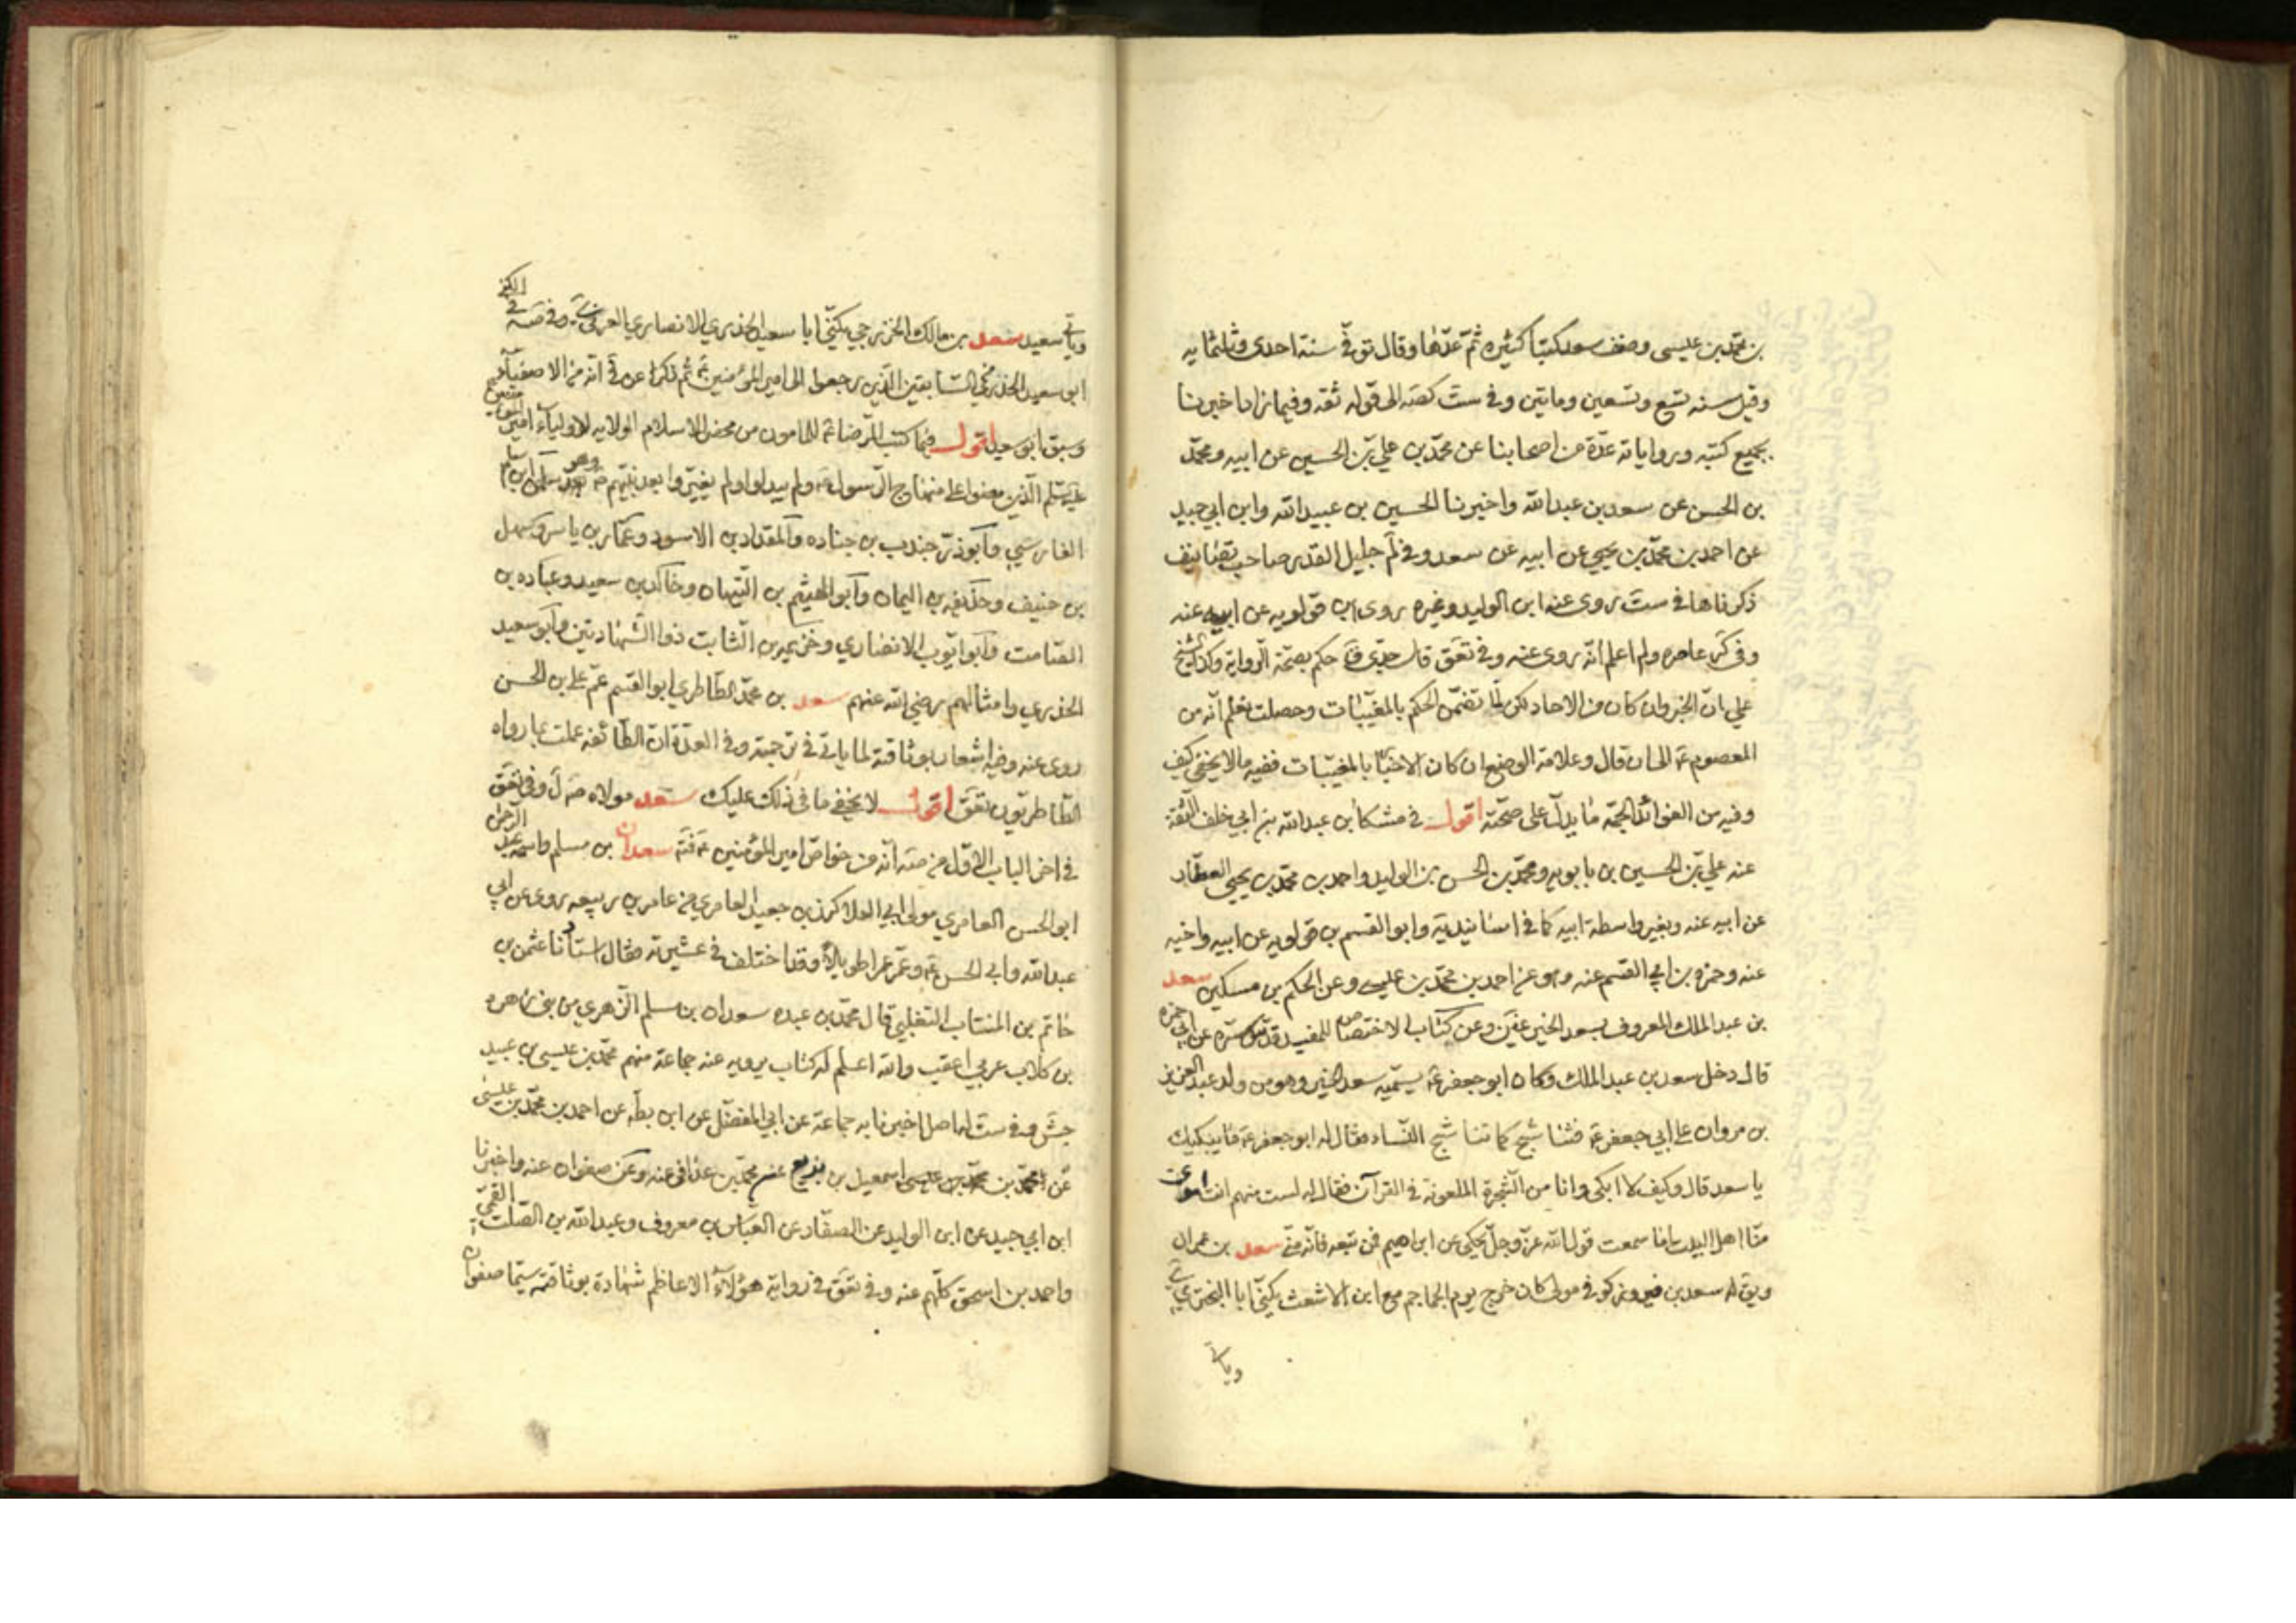 بن محمّد بن عيسى وصنف سعد كتبا كثيره ثمّ عدّها وقال توفّي سنة احدى وثلثمائه
وقيل سنه تسع وتسعين ومايتين وفي ست كصه الى قوله ثقه وفيما زاد اخبرنا
بجميع كتبه ورواياته عدّة من اصحابنا عن محمّد بن علي بن الحسين عن ابيه ومحمّد
بن الحسن عن سعد بن عبدالله واخبرنا الحسين بن عبيدالله وابن ابي جيد
عن احمد بن محمّد بن يحيى عن ابيه عن سعد وفي لم جليل القدر صاحب تصانيف
ذكرناها في ست روى عنه ابن الوليد وغيره روى ابن قولويه عن ابيه عنه
وفي كر عاصره ولم اعلم انّه روى عنه وفي تعق قال جدّي حكم بصحّة الرواية وكذا الشيخ
علي انّ الخبر وان كان من الاحاد لكن لما تضمّن الحكم بالمغيّبات وحصلت نعلم انّه من
المعصوم ع الى ان قال وعلامة الوضع ان كان الاخبار بالمغيّبات ففيه ما لا يخفى كيف
وفيه من الفوائد الجمّه ما يدلّ على صحّته اقول في مشكا بن عبدالله بن ابي خلف الثقة
عنه علي بن الحسين بن بابويه ومحمّد بن الحسن بن الوليد واحمد بن محمّد بن يحيى العطّار
عن ابيه عنه وبغير واسطة ابيه كما في اسانيد يه وابو القسم بن قولويه عن ابيه واخيه
عنه وحمزه بن ابي القسم عنه وهو عن احمد بن محمّد بن عيسى وعن الحكم بن مسكين سعد
بن عبدالملك المعروف بسعد الخير وعن كتاب الاختصاص للمفيد قدّس سرّه عن ابي حمزه
قال دخل سعد بن عبد الملك وكان ابو جعفر ع يسمّيه سعد الخير وهو من ولد عبد العزيز
بن مروان على ابي جعفر ع فنشج كما تنشج النساء فقال له ابو جعفر ع ما يبكيك
يا سعد قال وكيف لا ابكى وانا من الشجرة الملعونة في القرآن فقال له لست منهم انت اموى
منّا اهل البيت اما سمعت قول الله عزّ وجلّ يحكى عن ابراهيم فمن تبعه فانّه منّي سعد بن عمران
ويق له سعد بن فيروز كوفي مولى كان خرج يوم الجماجم مع ابن الاشعث يكنّى ابا البختري ي
وياتي
وياتي سعيد سعد بن مالك الخزرجي يكنّى ابا سعيد الخدري الانصاري العربي وفي صه في الكنى
ابو سعيد الخدري من السابقين الذين رجعوا الى امير المؤمنين ع ثم ذكرا عن ق انّه من الاصفياء
وسبق ابو سعيد اقول فيما كتب الرّضا ع للمامون من محض الاسلام الولايه لاولياء امير المؤمنين
عليه السلم الّذين مضوا على منهاج الرّسول ص ولم يبدلوا ولم يغيّروا بعد نبيّهم ص وهم سلمان
الفارسي وابو ذرّ جندب بن جناده والمقداد بن الاسود وعمّار بن ياسر وسهل
بن حنيف وحذيفه بن اليمان وابو الهيثم بن التيهان وخالد بن سعيد وعباده بن
الصّامت وابو ايّوب الانصاري وخزيمه بن الثابت ذو الشّهادتين وابو سعيد
الخدري وامثالهم رضي الله عنهم سعد بن محمّد الطاطري ابو القسم عمّ علي بن الحسن
روى عنه وفيه اشعار بوثاقته لما ياتي في ترجمته وفي العدّة انّ الطائفه عملت بما رواه
الطاطريّون تعق اقول لا يخفى ما في ذلك عليك سعد مولاه ص ل وفي تعق
في اخر الباب الاوّل من صه انّه من خواصّ امير المؤمنين ع سعدان بن مسلم واسمه عبد الرحمن
ابو الحسن العامري مولى ابي العلا كرز بن جعيد العامري من عامر بن ربيعه روى عن ابي
عبدالله وابي الحسن ع وعمّر عمرا طويلا وقد اختلف في عشيرته فقال استادنا عثمن بن
حاتم بن المنتاب التغلبي قال محمّد بن عبده سعدان بن مسلم الزهري من بني زهره
بن كلاب عربي اعقب والله اعلم له كتاب يرويه عنه جماعة منهم محمّد بن عيسى بن عبيد
جش وفي ست له اصل اخبرنا به جماعة عن ابي المفضّل عن ابن بطه عن احمد بن محمّد بن عيسى
عن محمد بن اسمعيل بن بزيع عنه محمّد بن عذافر عنه وعن صفوان عنه واخبرنا
ابن ابي جيد عن ابن الوليد عن الصفّار عن العبّاس بن معروف وعبدالله بن الصّلت القمّي
واحمد بن اسحق كلّهم عنه وفي تعق في رواية هؤلاء الاعاظم شهادة بوثاقته سيّما صفوان